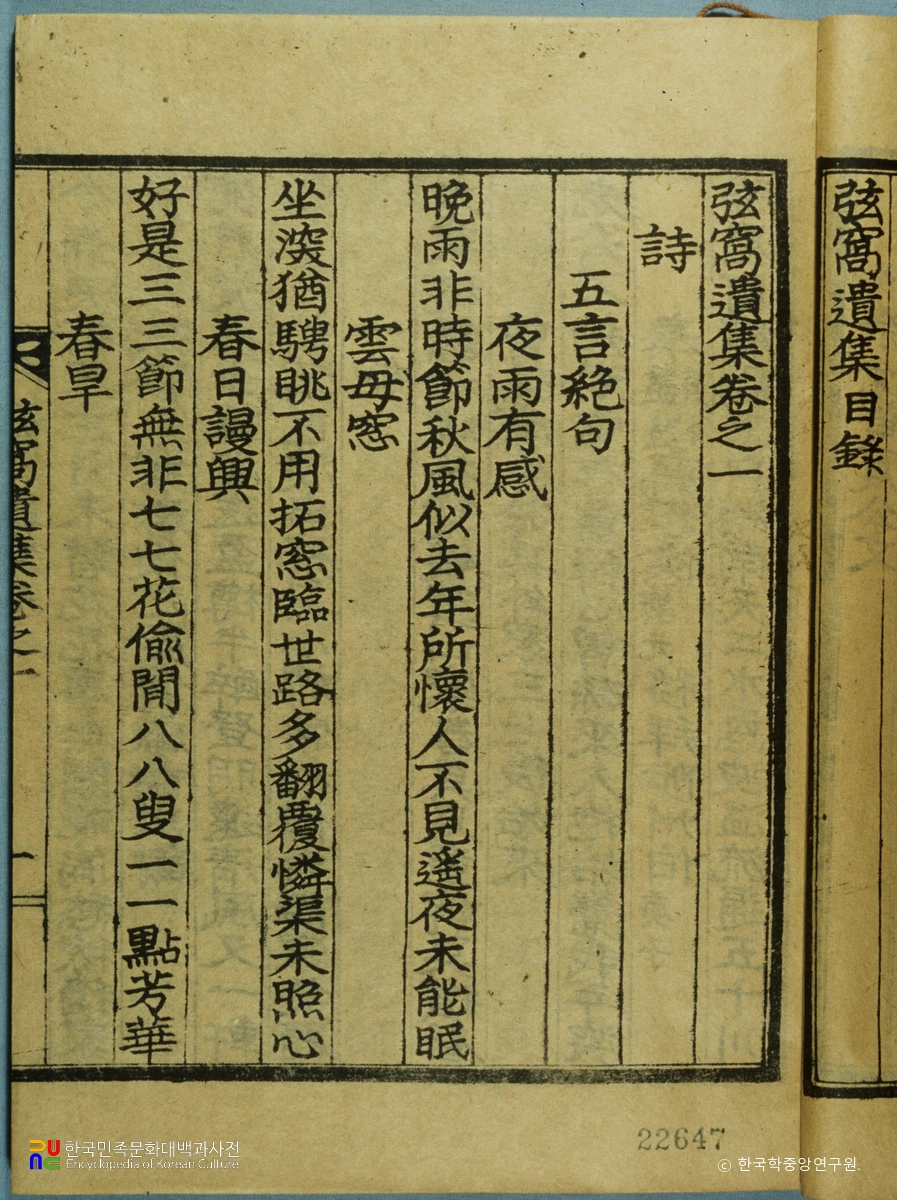 弦窩遺集目錄
弦窩遺集卷之一
詩
五言絶句
夜雨有感
晩雨非時節秋風似去年所懷人不見遙夜未能眠
雲母窓
坐深猶騁眺不用拓窓臨世路多翻覆憐渠未照心
春日謾興
好是三三節無非七七花偸閒八八叟一一點芳華
春旱
弦窩遺集卷之一
一
22647
한국민족문화대백과사전
Encyclopedia of Korean Culture
ⓒ 한국학중앙연구원.